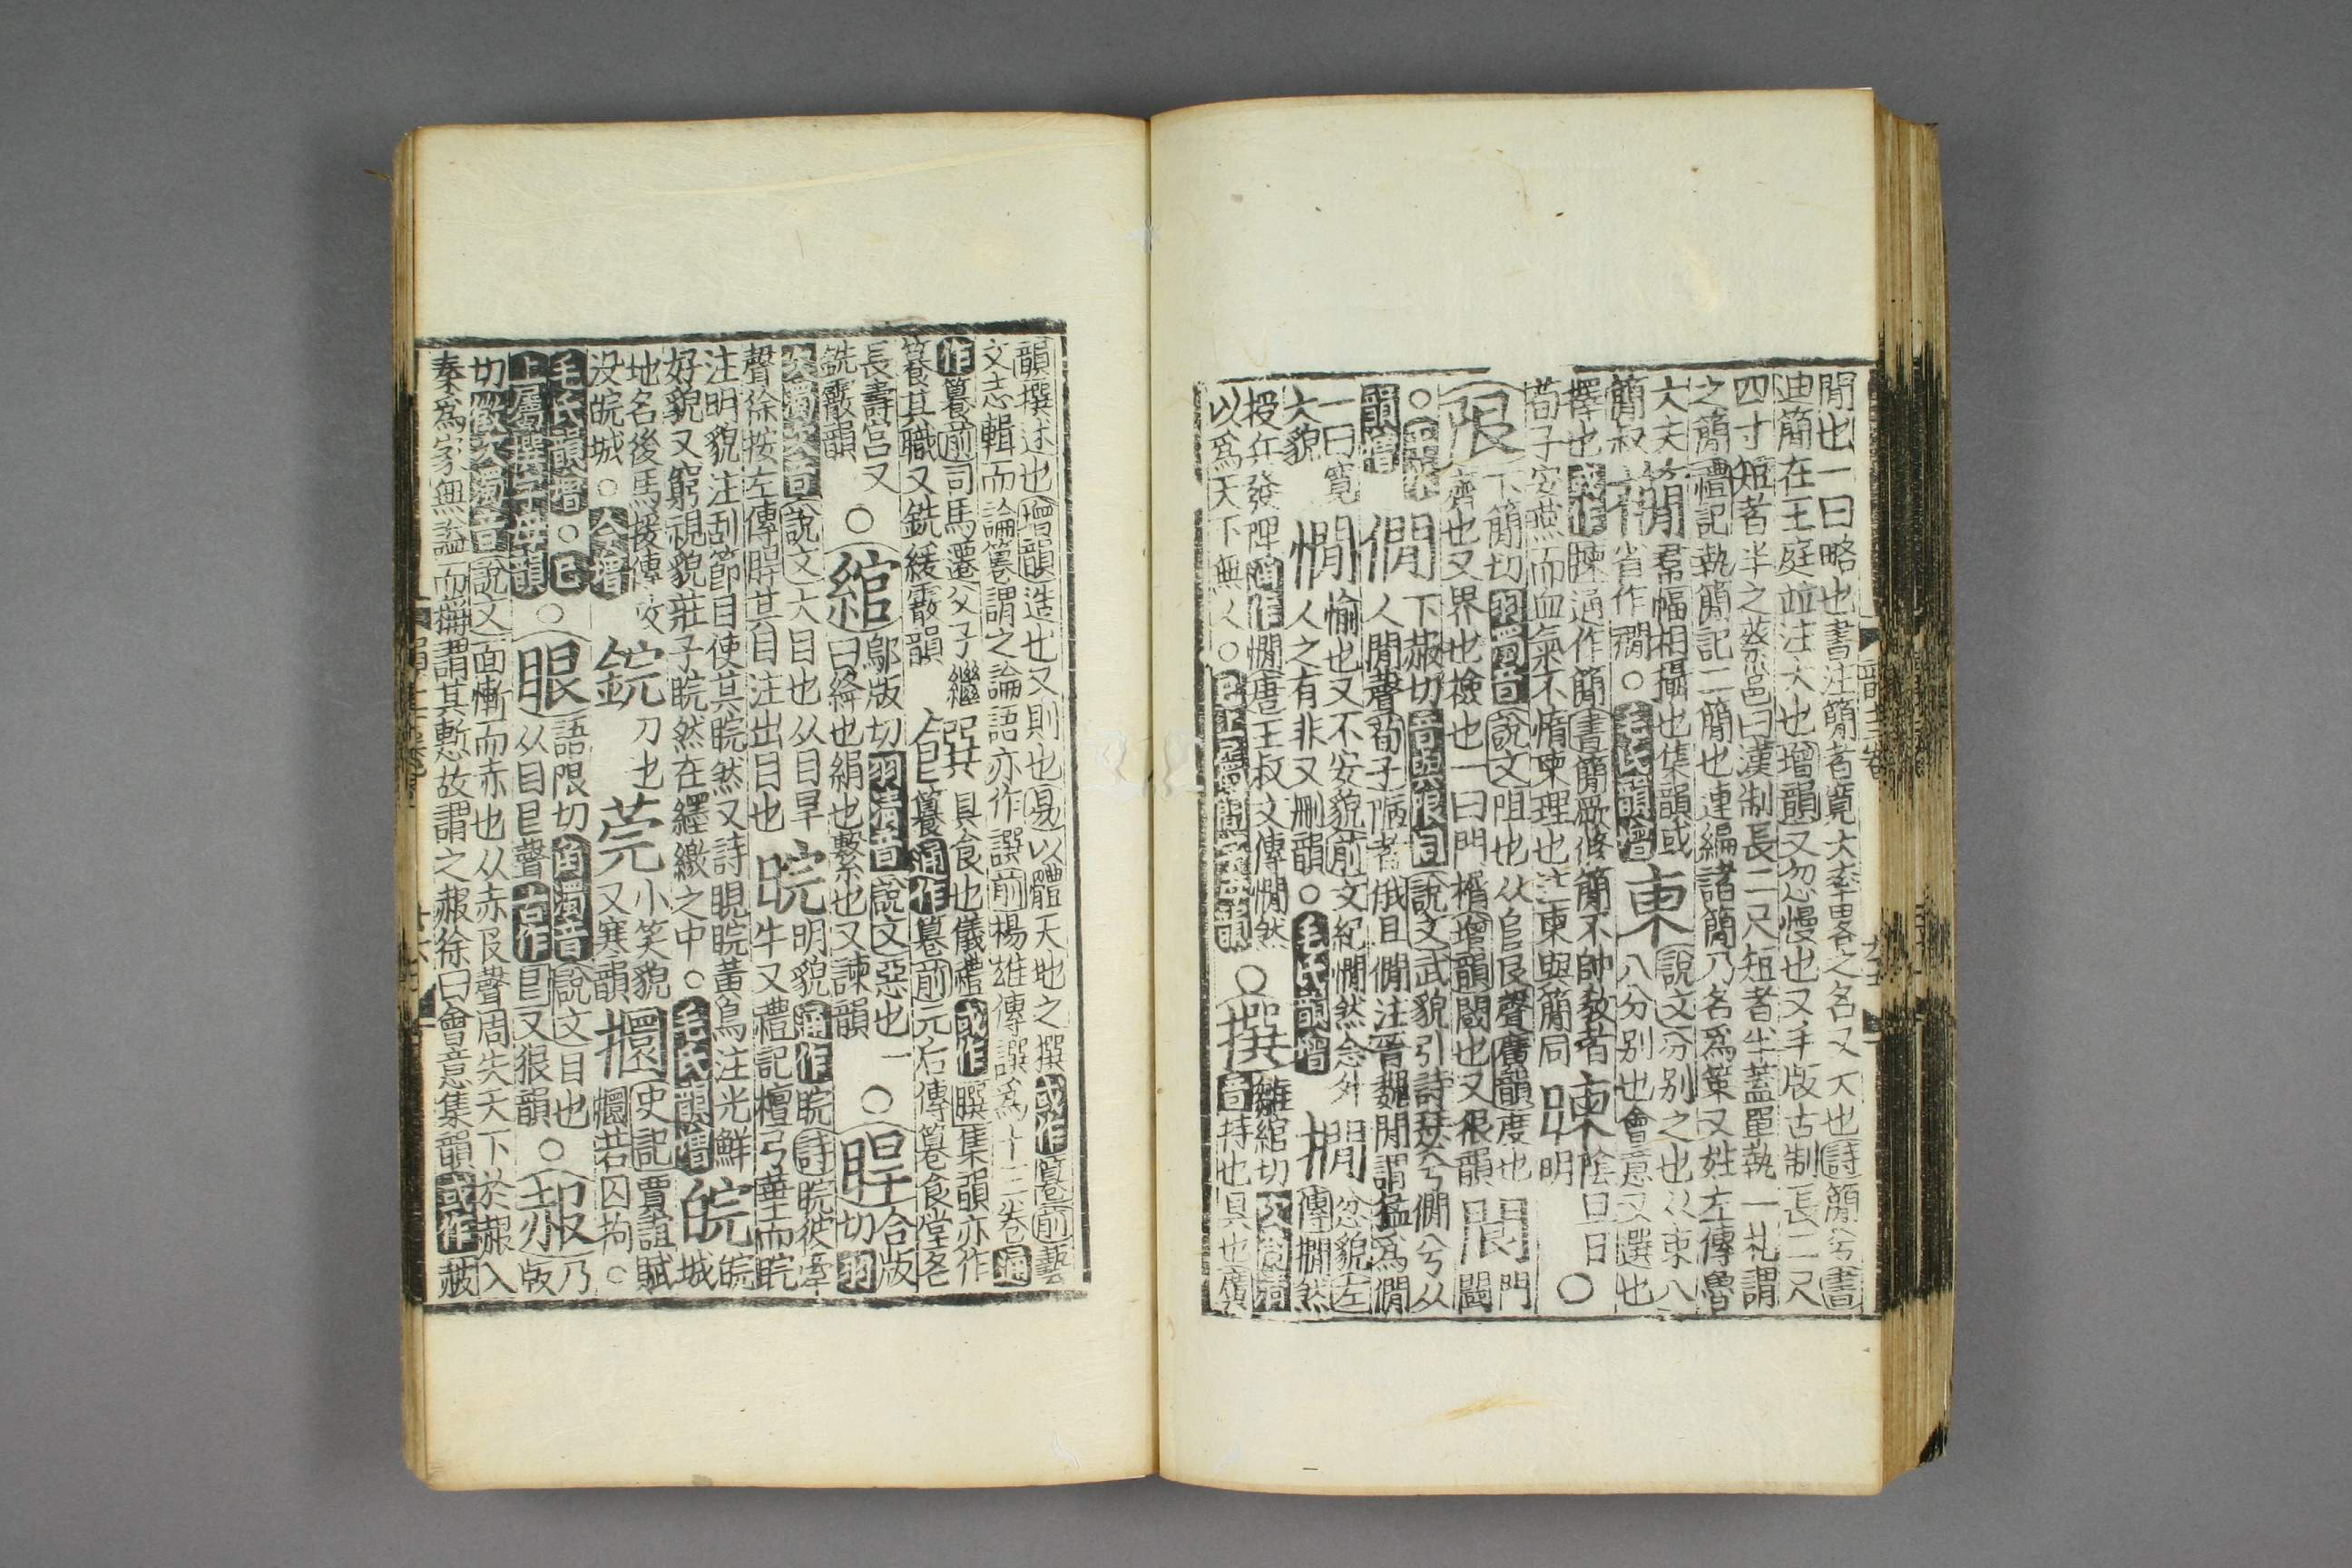 閒也一曰略也書注簡者寬大率略之名又大也詩簡兮書
迪簡在王庭並注大也增韻又忽慢也又手版古制長二尺
四寸短者半之蔡邕曰漢制長二尺短者半蓋單執一札謂
之簡禮記執簡記二簡也連編諸簡乃名為策又姓左傳魯
大夫
簡叔
襉
羣幅相攝也集韻或
省作襉○毛氏韻增
柬
說文分別之也从束八
八分別也會意又選也
擇也或作揀通作簡書簡厥修簡不帥教者
荀子安燕而血氣不惰柬理也注柬與簡同
暕
陰旦日
明
○
限
下簡切羽濁音說文阻也从𨸏艮聲廣韻度也
齊也又界也檢也一曰門榍增韻閾也又很韻
䦘
門
閾
○平水
韻增
僩
下赧切音與限同說文武貌引詩瑟兮僩兮从
人閒聲荀子陋者俄且僩注晉魏閒謂猛為僩
一曰寬
大貌
憪
愉也又不安貌前文紀憪然念外
人之有非又刪韻○毛氏韻增
撊
忿貌左
傳撊然
授兵發陴通作憪唐王叔文傳憪然
以為天下無人○
○
撰
雛綰切次濁
音持也具也廣
韻撰述也增韻造也又則也易以體天地之撰或作篹前藝
文志輯而論篹謂之論語亦作譔前楊雄傳譔為十二卷通
作篡前司馬遷父子繼
篹其職又銑緩霰韻
籑
具食也儀禮或作䉵集韻亦作
籑通作篹前元后傳篹食堂名
長壽宮又
銑霰韻
○
綰
鄔版切羽清音說文惡也一
曰絳也絹也繫也又諫韻
○
睅
合版
切羽
次濁次音說文大目也从目旱
聲徐按左傳睅其目注出目也
睆
明貌通作睆詩睆彼牽
牛又禮記檀弓華而睆
注明貌注刮節目使其睆然又詩睍睆黃鳥注光鮮
好貌又窮視貌莊子睆然在纆繳之中○毛氏韻增
皖
皖
城
地名後馬援傳攻
沒皖城○今增
鋎
刀也
莞
小笑貌
又寒韻
擐
史記賈誼賦
擐若囚拘○
毛氏韻增○已
上屬撰字母韻
○
眼
語限切角濁音說文目也
从目㫐聲古作㫐又很韻
○
赧
乃
版
切徵次濁音說文面慚而赤也从赤𠬝聲周失天下於赧入
秦為家無謚而爵謂其慙故謂之赧徐曰會意集韻或作䩤